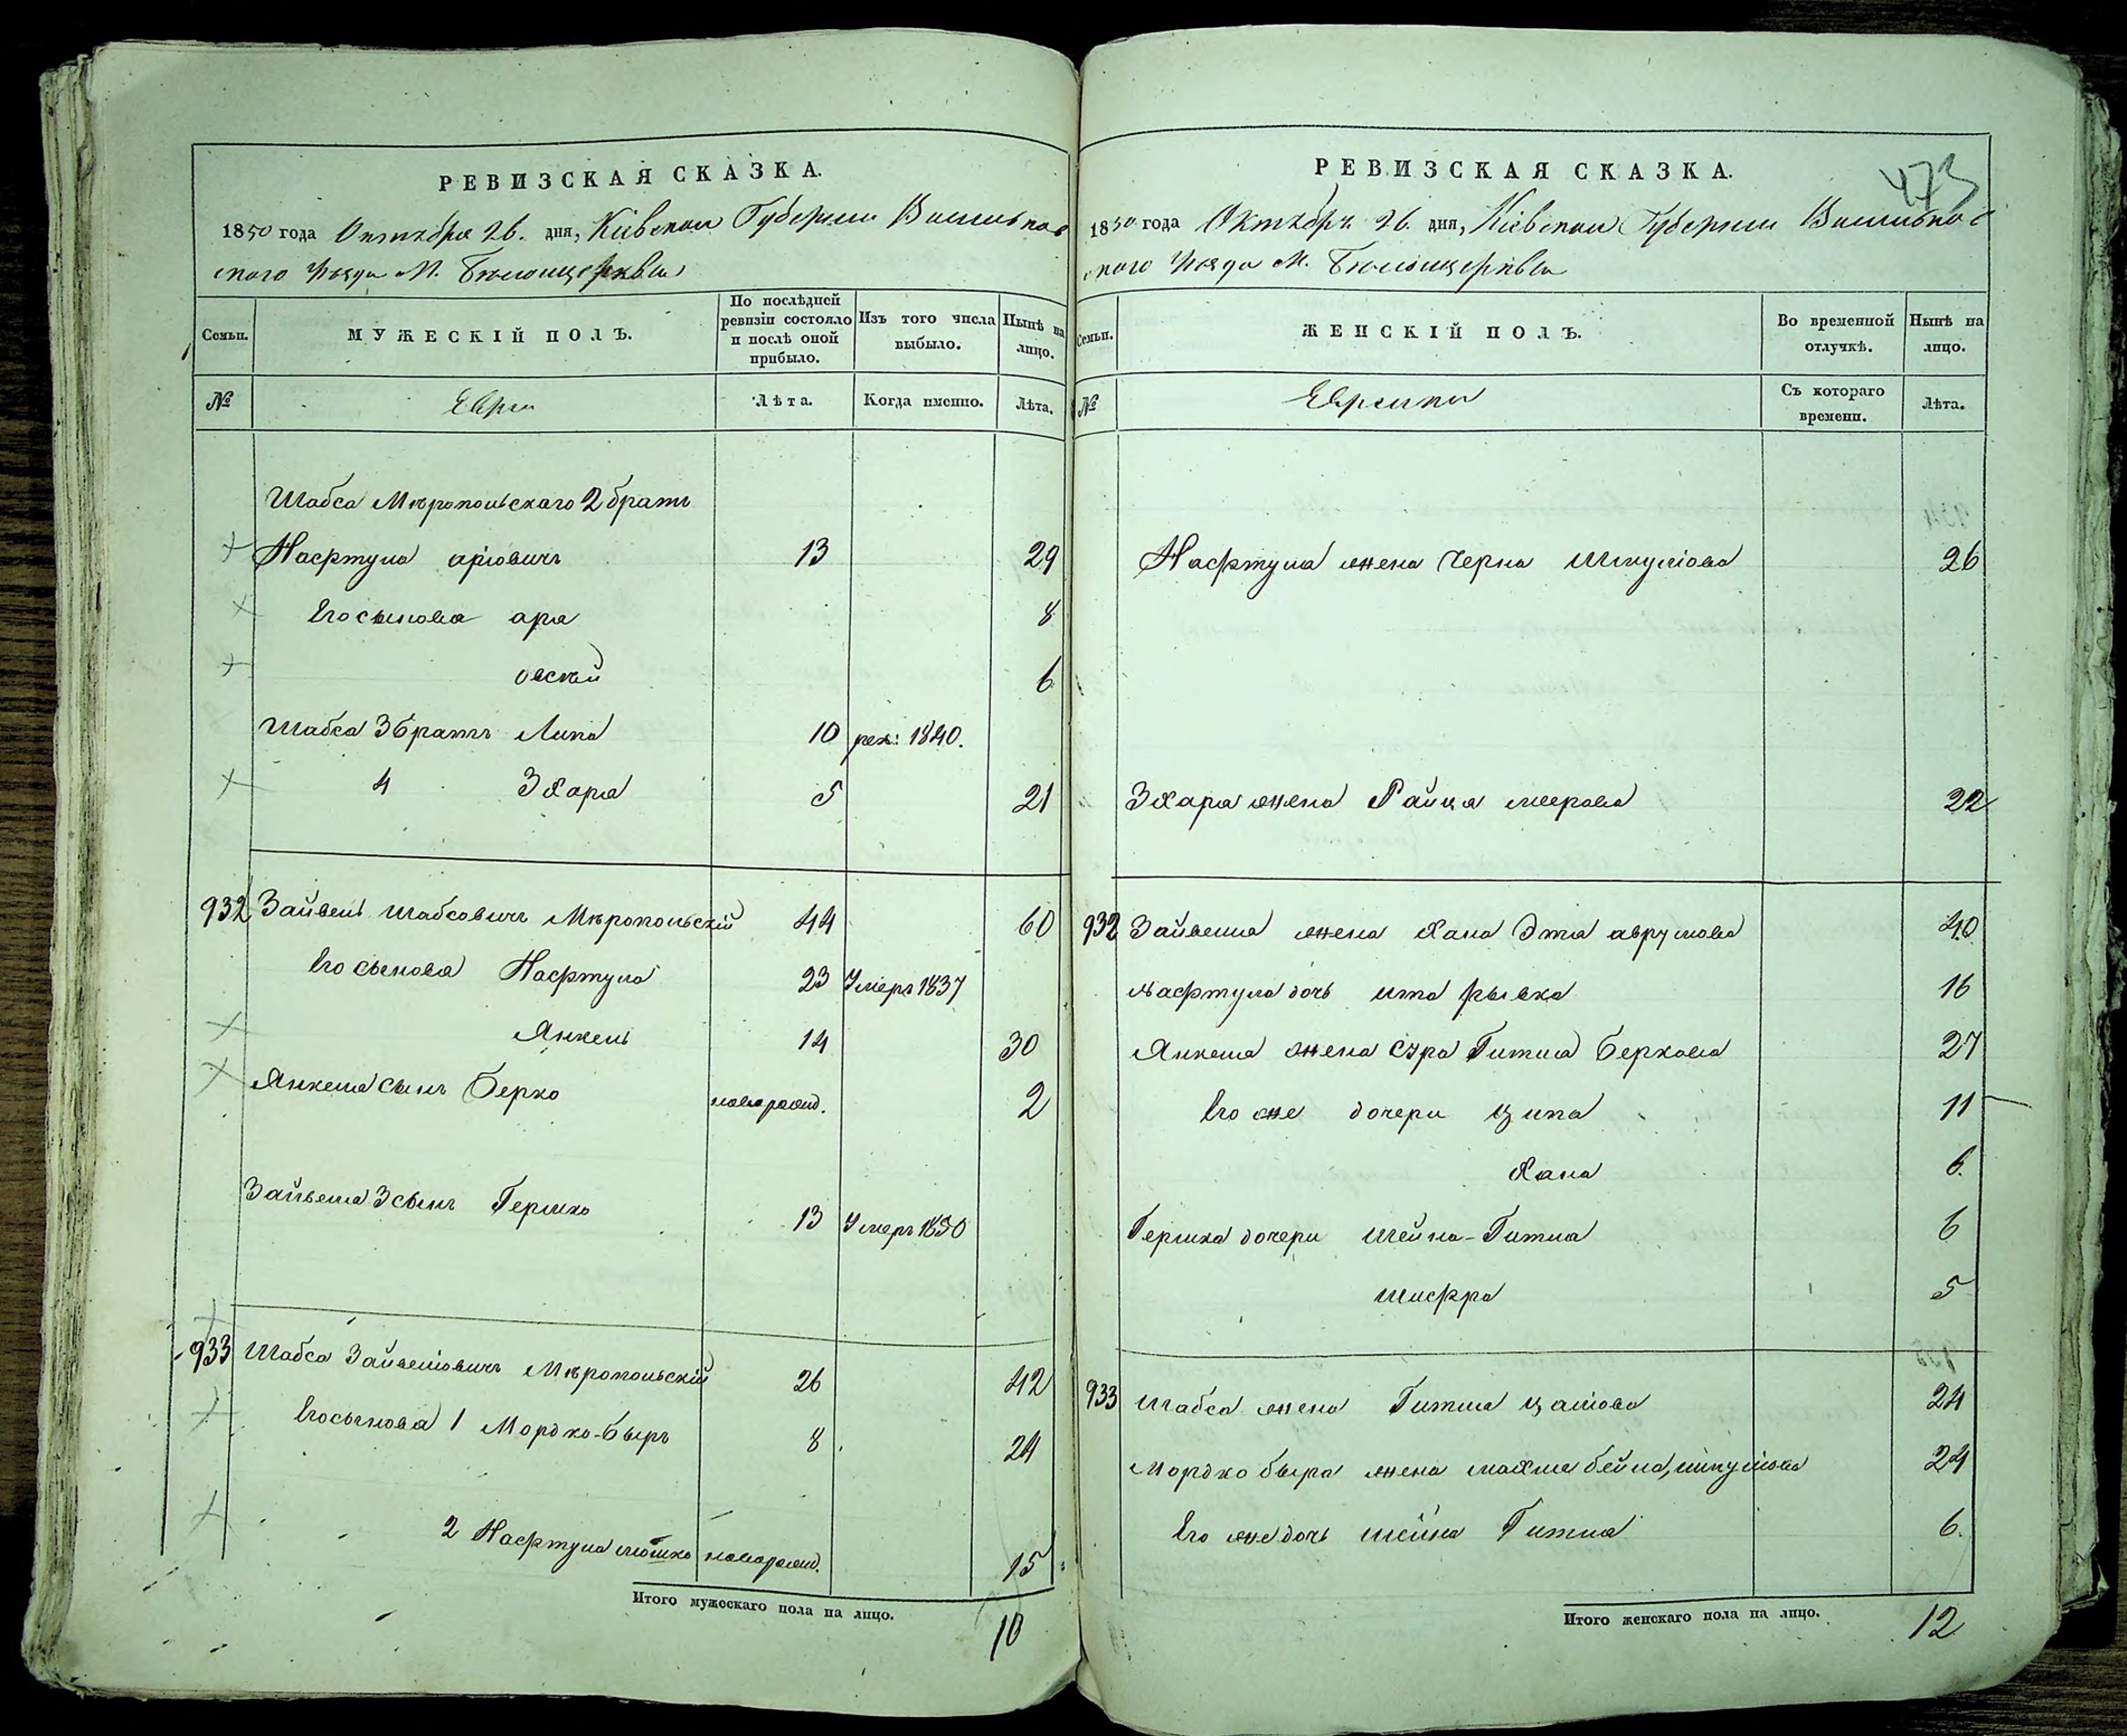 РЕВИЗСКАЯ СКАЗКА.
1850 года Октября 26. дня, Кіевской Губерніи Васильков
скаго Уѣзда М. Бѣлоцеркви
Семьи.
МУЖЕСКІЙ ПОЛЪ.
По послѣдней ревизіи состояло и послѣ оной прибыло.
Изъ того числа выбыло.
Нынѣ на лицо.
№
Евреи
Лѣта.
Когда именно.
Лѣта.
Шабса Мѣропольскаго 2 братъ
Нафтула аріовичъ 13 29
Его сыновя аря 8
овсѣй 6
Шабса 3 братъ Липа 10 рек: 1840.
4 Зхаря 5 21
932 Зайвель Шабсовичъ Мѣропольскій 44 60
Его сыновя Нафтула 23 Умеръ 1837
Янкель 14 30
Янкеля сынъ Берко новорожд. 2
Зайвеля 3 сынъ Гершко 13 Умеръ 1850
933 Шабса Зайвеліовичъ Мѣропольскій 26 42
Его сыновя 1 Мордко-Быръ 8 24
2 Нафтула мошко новорожд. 15
Итого мужескаго пола на лицо.
10
473
РЕВИЗСКАЯ СКАЗКА.
1850 года Октября 26. дня, Кіевской Губерніи Васильков
скаго Уѣзда М. Бѣлоцеркви
Семьи.
ЖЕНСКІЙ ПОЛЪ.
Во временной отлучкѣ.
Нынѣ на лицо.
№
Еврейки
Съ котораго времени.
Лѣта.
Нафтула жена Черна Шмуліова 26
Зхаря жена Райця меерова 22
932 Зайвеля жена Хана Эта аврумова 40
нафтула дочь ита рывка 16
Янкеля жена Сура Гитля Беркова 27
Его же дочери ципа 11
Хана 6.
Гершка дочери шейна-Гитля 6
шифра 5
933 шабса жена Гитля цаліова 24
мордко быра жена махля бейла, шмуліова 24
Его же дочь шейна Гитля 6.
Итого женскаго пола на лицо.
12